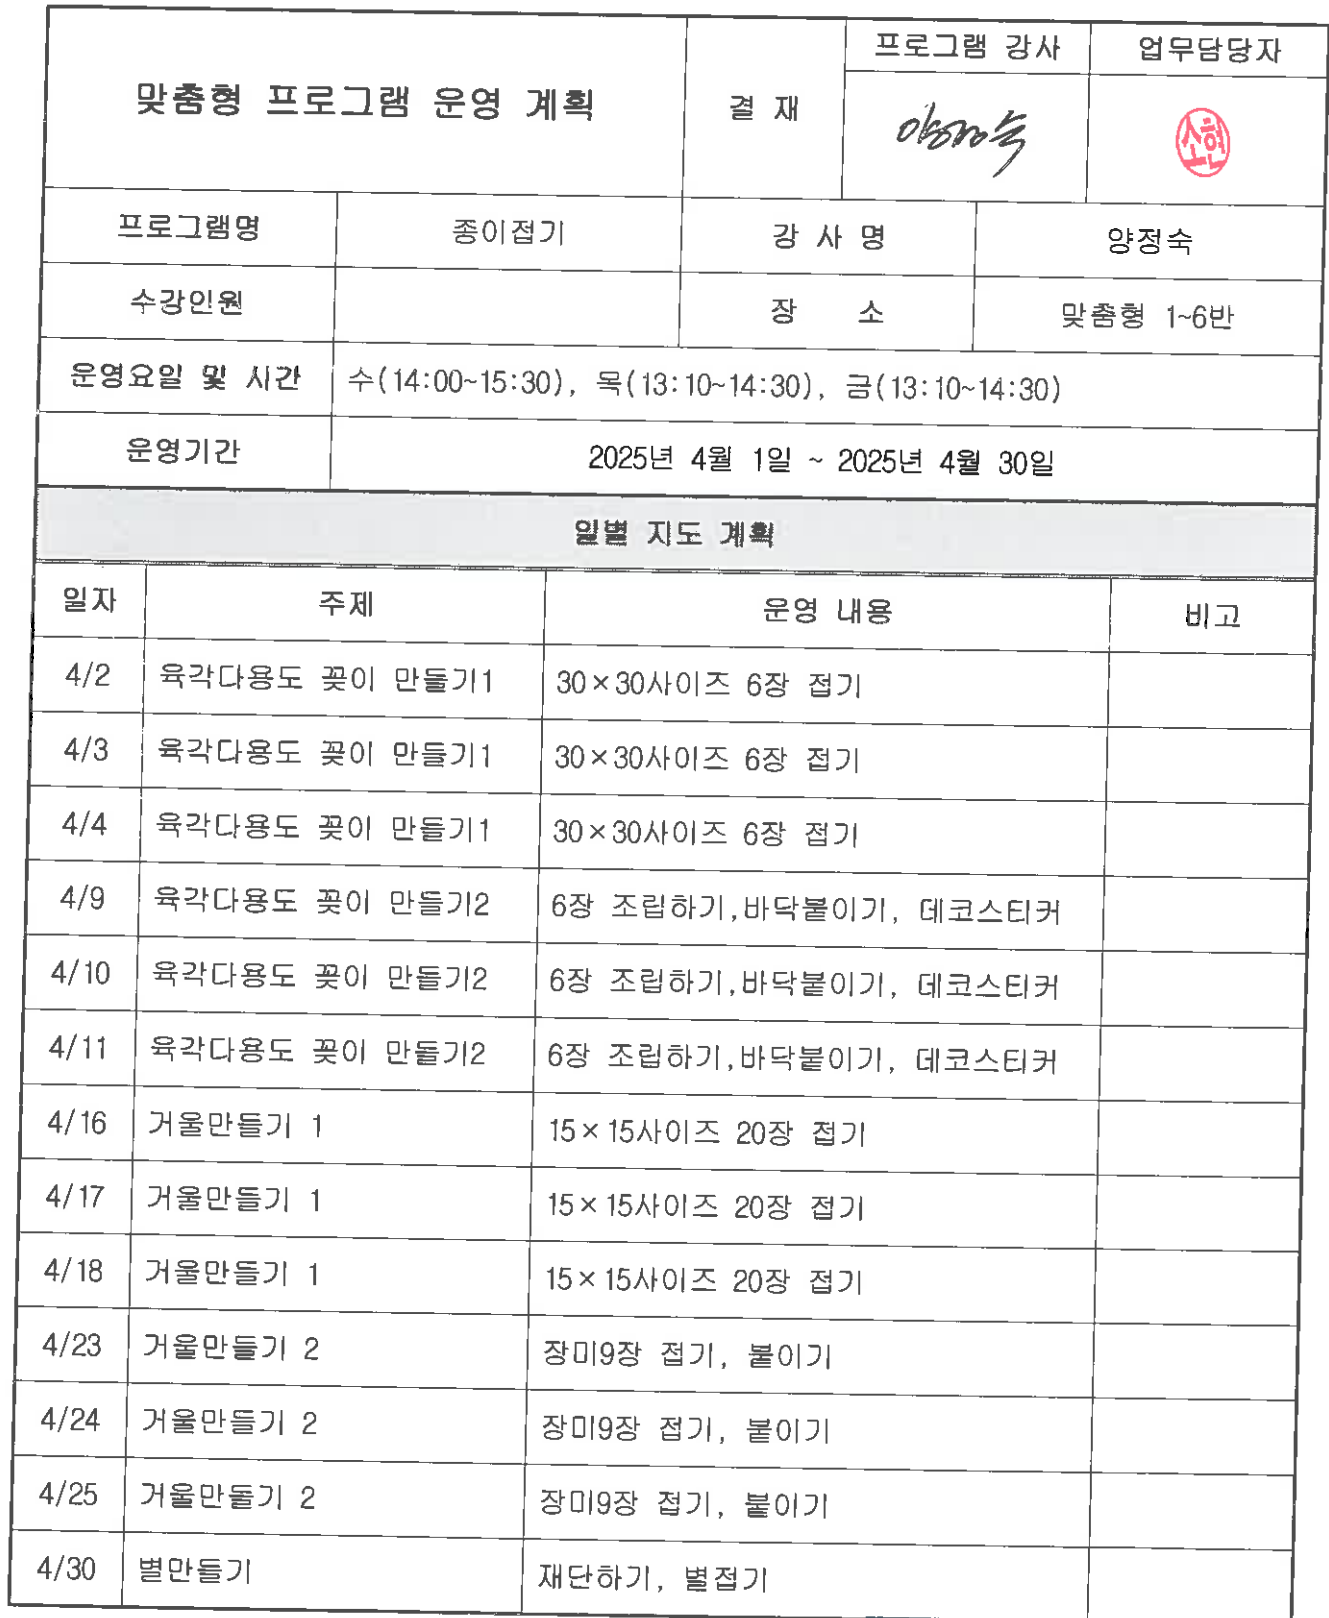 맞춤형 프로그램 운영 계획
결 재
프로그램 강사
업무담당자
양정숙
소현
프로그램명
종이접기
강 사 명
양정숙
수강인원
장 소
맞춤형 1~6반
운영요일 및 시간
수(14:00~15:30), 목(13:10~14:30), 금(13:10~14:30)
운영기간
2025년 4월 1일 ~ 2025년 4월 30일
일별 지도 계획
일자 주제 운영 내용 비고
4/2 육각다용도 꽂이 만들기1 30×30사이즈 6장 접기
4/3 육각다용도 꽂이 만들기1 30×30사이즈 6장 접기
4/4 육각다용도 꽂이 만들기1 30×30사이즈 6장 접기
4/9 육각다용도 꽂이 만들기2 6장 조립하기,바닥붙이기, 데코스티커
4/10 육각다용도 꽂이 만들기2 6장 조립하기,바닥붙이기, 데코스티커
4/11 육각다용도 꽂이 만들기2 6장 조립하기,바닥붙이기, 데코스티커
4/16 거울만들기 1 15×15사이즈 20장 접기
4/17 거울만들기 1 15×15사이즈 20장 접기
4/18 거울만들기 1 15×15사이즈 20장 접기
4/23 거울만들기 2 장미9장 접기, 붙이기
4/24 거울만들기 2 장미9장 접기, 붙이기
4/25 거울만들기 2 장미9장 접기, 붙이기
4/30 별만들기 재단하기, 별접기